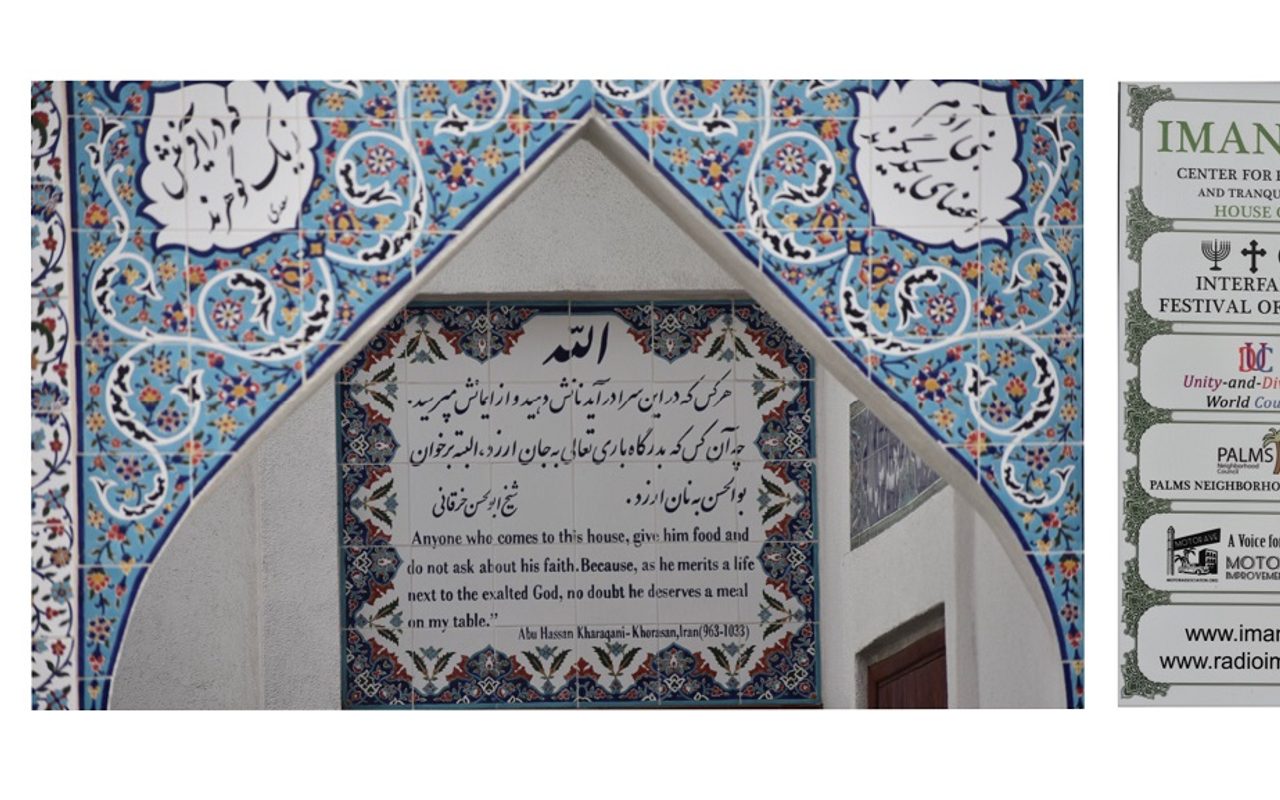 بنی آدم
اعضای یکدیگرند
که در آفرینش
ز یک گوهرند
سعدی
الله
هر کس که در این سرا درآید نانش دهید و از ایمانش مپرسید.
چه آن کس که بدرگاه باری تعالی به جان ارزد، البته برخوان
بوالحسن به نان ارزد. شیخ ابوالحسن خرقانی
Anyone who comes to this house, give him food and
do not ask about his faith. Because, as he merits a life
next to the exalted God, no doubt he deserves a meal
on my table.”
Abu Hassan Kharaqani- Khorasan, Iran (963-1033)
IMAN
CENTER FOR
AND TRANQU
HOUSE
INTERFA
FESTIVAL OF
UDC
Unity-and-Di
World Cou
PALMS
Neighborhood
Council
PALMS NEIGHBORHO
MOTOR AVE
MOTORASSOCIATION.ORG
A Voice for
MOTO
IMPROVEME
www.iman
www.radioim